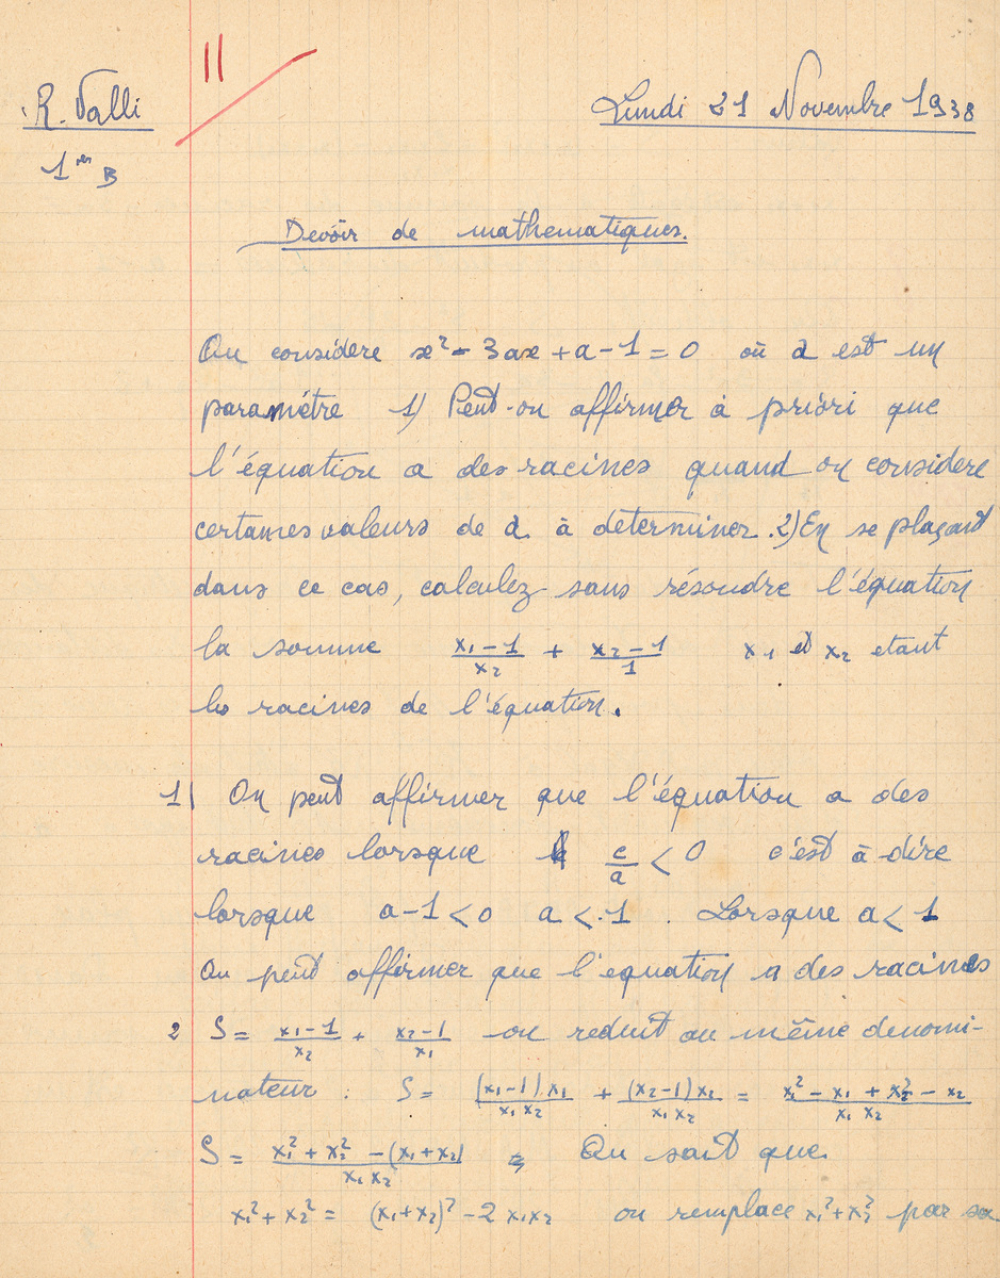 11
R. Valli
Lundi 21 Novembre 1938
1ère B
Devoir de mathematiques.
On considère x² - 3ax + a - 1 = 0 où a est un
paramétre 1) Peut-on affirmer à priori que
l'équation a des racines quand on considere
certaines valeurs de a à determiner. 2) En se plaçant
dans ce cas, calculez sans résoudre l'équation
la somme (x₁ - 1)/x₂ + (x₂ - 1)/1 x₁ et x₂ etant
les racines de l'équation.
1) On peut affirmer que l'équation a des
racines lorsque c/a < 0 c'est à dire
lorsque a - 1 < 0 a < 1. Lorsque a < 1
On peut affirmer que l'equation a des racines
2 S = (x₁ - 1)/x₂ + (x₂ - 1)/x₁ on reduit au même denomi-
nateur : S = (x₁ - 1) x₁/x₁ x₂ + (x₂ - 1) x₂/x₁ x₂ = (x₁² - x₁ + x₂² - x₂)/x₁ x₂
S = (x₁² + x₂² - (x₁ + x₂))/x₁ x₂ = On sait que
x₁² + x₂² = (x₁ + x₂)² - 2 x₁x₂ on remplace x₁² + x₂² par sa